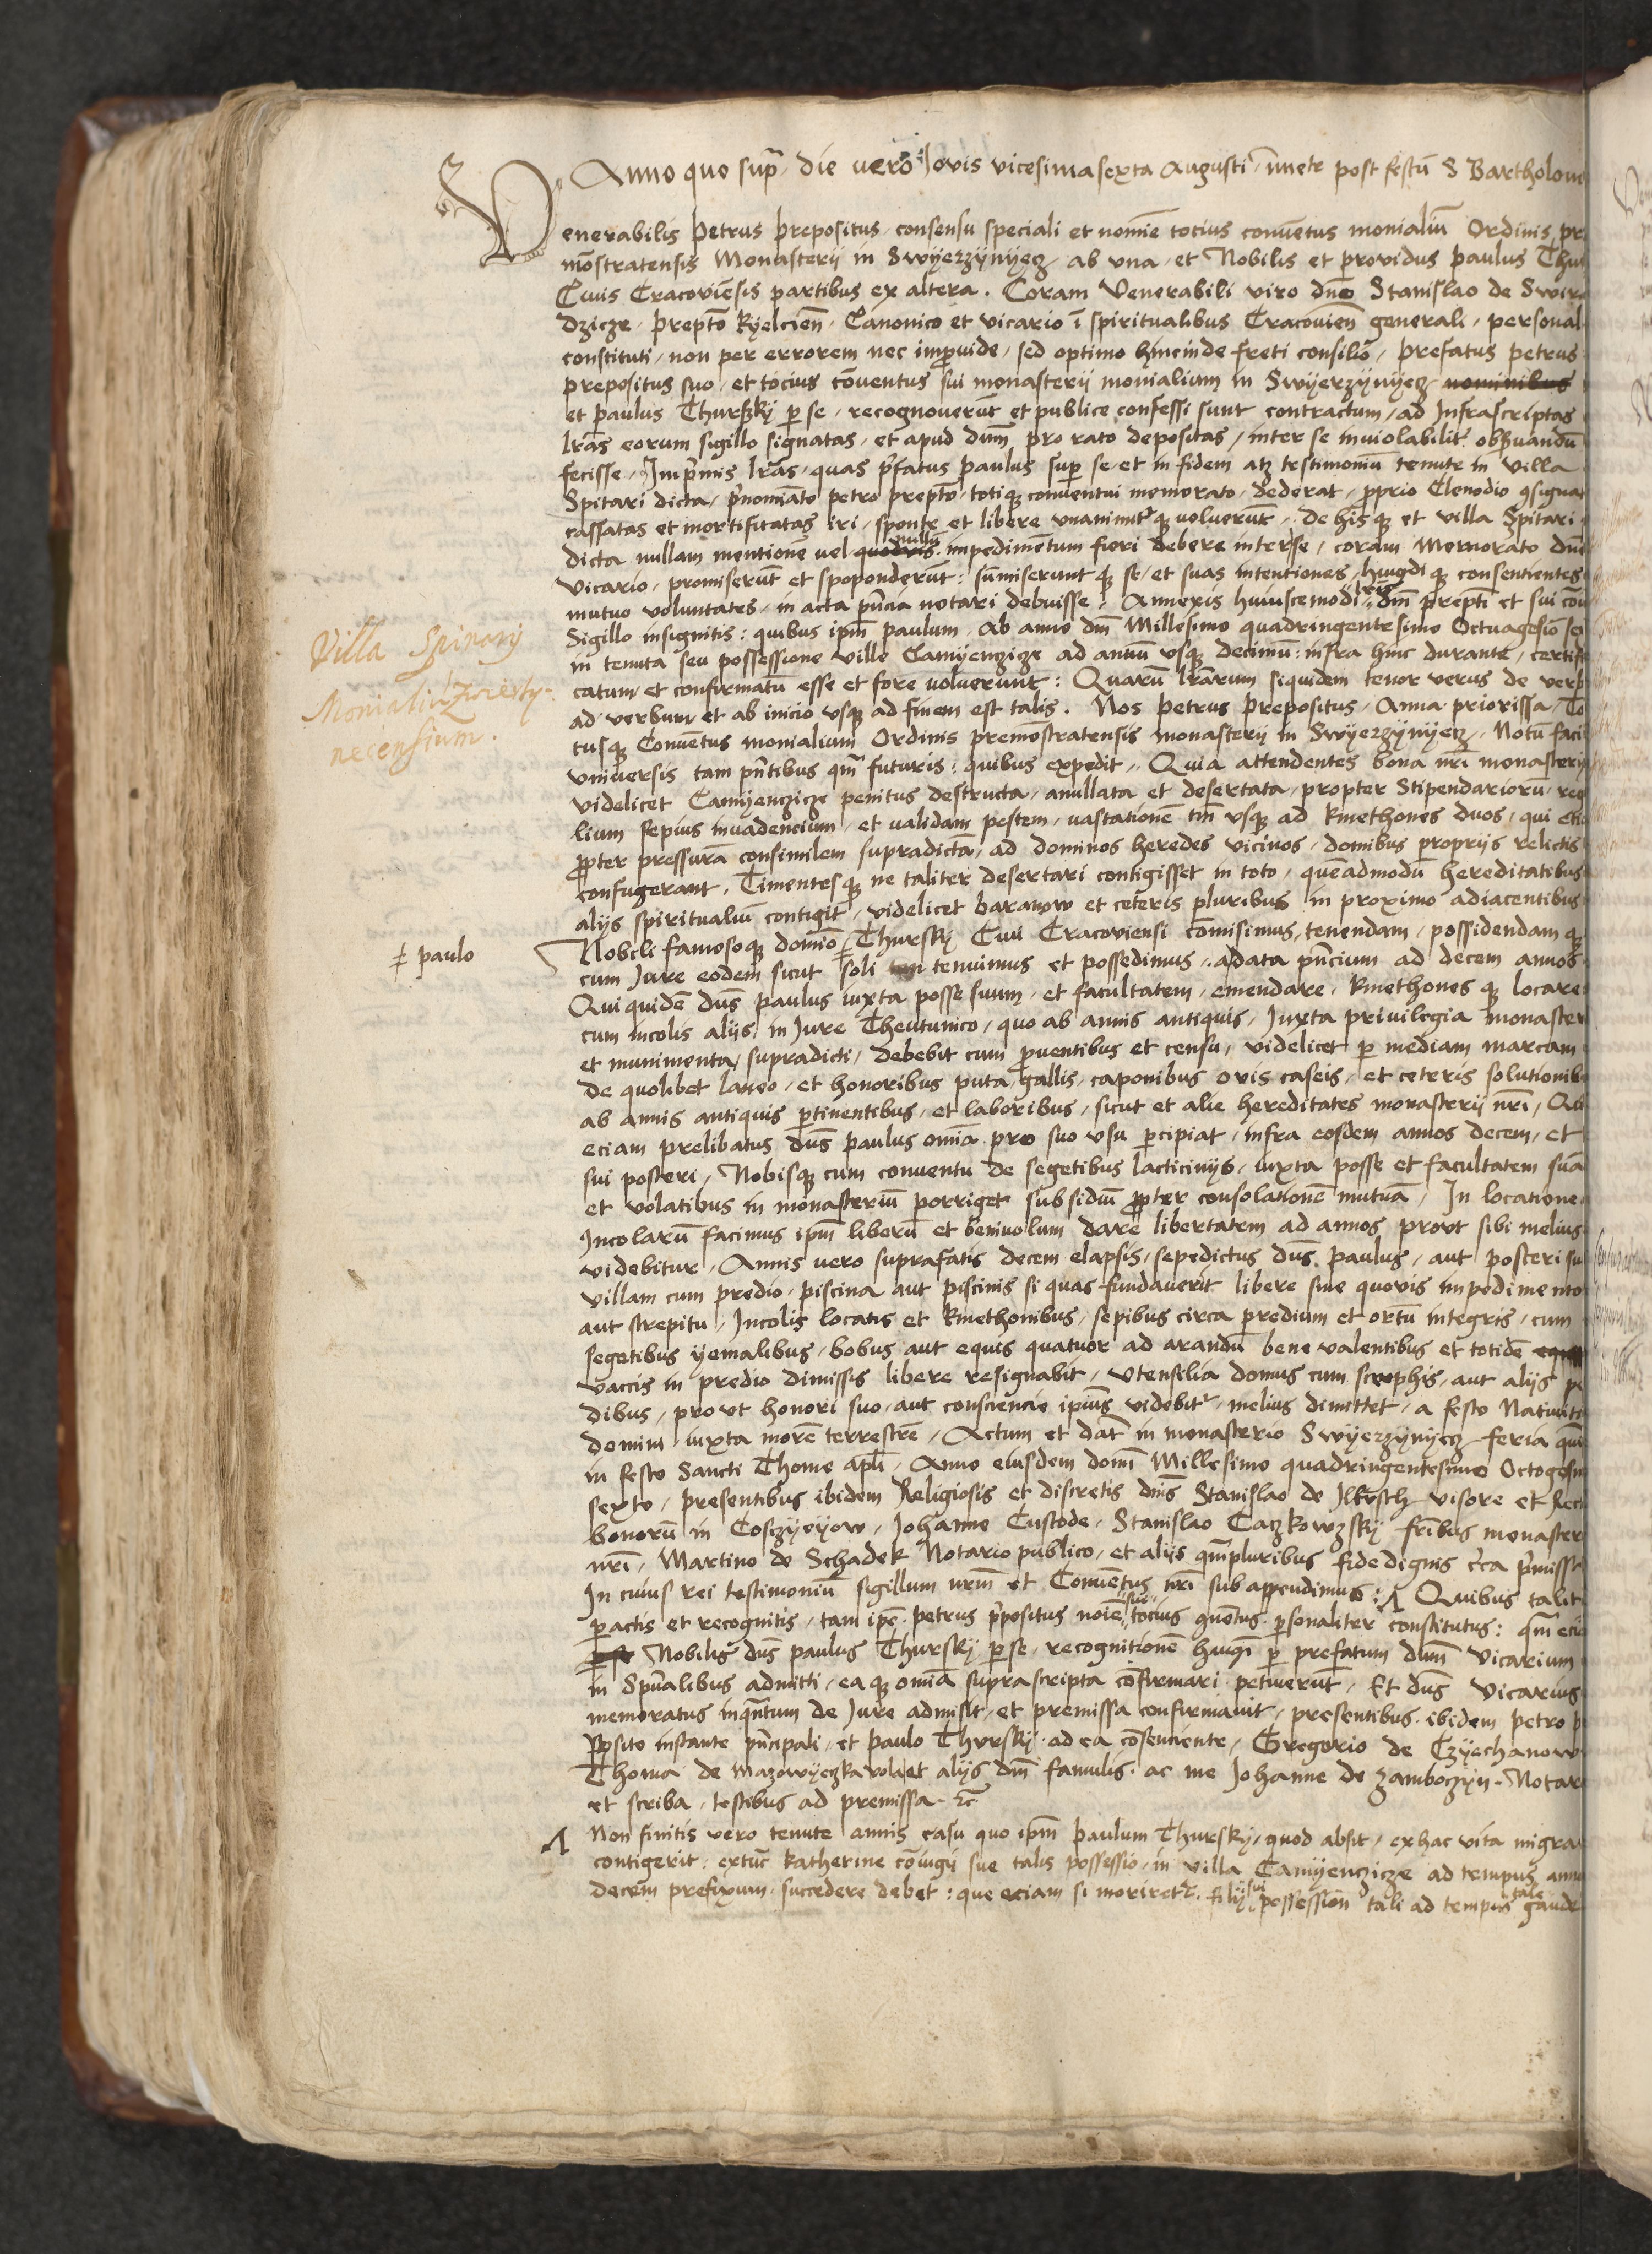 Anno quo supra die vero Jovis vicesima sexta Augusti, īmete post festū S Bartholome
Venerabilis Petrus Prepositus, consensu speciali et nomīe tocius convētus monialiū Ordinis pr
mōstratensis Monasterij in Swyerzynyecz, ab una, et Nobilis et providus paulus Thur
Civis Cracoviēsis partibus ex altera. Coram Venerabili viro dno Stanislao de Swira
dzicze, preptō kyelcień, Canonico et vicario ī spiritualibus Cracovień generali, personal
constituti, non per errorem nec improvide, sed optimo hincinde freti consilio, prefatus petrus
prepositus suo, et tocius cōventus sui monasterij monialium in Swyerzynyecz nominibus
et paulus Thurszky p se, recognoverūt et publice confessi sunt contractum, ad Infrascriptas
lrās eorum sigillo signatas, et apud dnm pro rato depositas, inter se inviolabilit observandū
fecisse, Inprimis lrās, quas prefatus paulus sup se, et in fidem atqz testimoniū tenute in villa
Spitari dicta, prenoīato petro preptō, totiqz conventui memorato, dederat, proprio Clenodio consignat
cassatas et mortificatas iri, sponte et libere unanimitqz voluerūt, de hisqz et villa Spitari
dicta nullam mentionē vel quodvis nullū impedimētum fieri debere interse, coram Memorato dno
Vicario, promiserūt et spoponderūt: sūmiseruntqz se, et suas intentiones, huigdi qz consentientes
mutuo voluntates, in acta pncia notari debuisse, Annexis huiuscemodi lris dni prepti et sui cōv
Sigillo insignitis: quibus ipm paulum, Ab anno dni Millesimo quadringentesimo Octuagesīo se
in tenuta seu possessione ville Camyenczicze ad annū usqz decimū: infra hinc durante, certifi
catum et confirmatū esse et fore voluerunt: Quarū lrārum siquidem tenor verus de verbo
ad verbum et ab inicio usqz ad finem est talis. Nos Petrus Prepositus, Anna priorissa, To
tusqz Conventus monialium Ordinis premōstratensis monasterij in Swyerzynyecz, Notū faci
universis tam pntibus qm futuris: quibus expedit, Quia attendentes bona nri monasterij
videlicet Camyenczicze penitus destructa, anullata et desertata, propter Stipendariorū reg
lium sepius invadencium, et validam pestem, vastationē tm usqz ad kmethones duos, qui eti
propter pressurā consimilem supradictā, ad dominos heredes vicinos, domibus proprijs relictis
confugerant, Timentesqz ne taliter desertari contigisset in toto, quēadmodū hereditatibus
alijs spiritualiū contigit, videlicet baranow et ceteris pluribus in proximo adiacentibus
Nobili famosoqz domīo ǂ Thurszky Civi Cracoviensi comisimus, tenendam, possidendamqz
cum Jure eodem sicut soli tenuimus et possedimus, a data pncium ad decem annos
Qui quidē dns paulus iuxta posse suum, et facultatem, emendare, kmethones qz locare
cum incolis alijs, in Jure Theutunico, quo ab annis antiquis, Juxta privilegia monaster
et munimenta, supradicti, debebit cum pventibus et censu, videlicet p mediam marcam
de quolibet laneo, et honoribus puta gallis, caponibus ovis caseis, et ceteris solutionib
ab annis antiquis ptinentibus, et laboribus, sicut et alie hereditates monasterij nri,
eciam prelibatus dns paulus omīa pro suo usu pcipiat, infra eosdem annos decem, et
sui posteri, Nobisqz cum conventu de segetibus lacticinijs, iuxta posse et facultatem suā
et volatibus in monasteriū porriget subsidiū propter consolationē mutuā, In locatione
Incolarū facimus ipm liberū et benivolum dare libertatem ad annos, provt sibi melius
videbitur, Annis vero suprafatis decem elapsis, sepedictus dns paulus, aut posteri su
villam cum predio, piscina aut piscinis si quas fundaverit libere sine quovis impedimento
aut strepitu, Incolis locatis et kmethonibus, sepibus circa predium et ortū integris, cum
segetibus yemalibus, bobus aut equis quatuor ad arandū bene valentibus et totidē
vaccis in predio dimissis libere resignabit, Utensilia domus cum scrophis, aut alijs pe
dibus, provt honori suo, aut consciencie ipius videbit, melius dimittet, a festo Nativita
domini iuxta morē terrestrē, Actum et dat in monasterio Swyerzynyecz feria qui
in festo Sancti Thome apli, Anno eiusdem domi Millesimo quadringentesimo Octogesi
sexto, presentibus ibidem Religiosis et discretis dnis Stanislao de Ilkvsch visore et Rect
bonorū in Cosczyeyow, Johanne Custode, Stanislao Caczkowzsky fribus monaster
nri, Martino de Schadek Notario publico, et alijs qmpluribus fidedignis circa premissa
In cuius rei testimoniū sigillum nrm et Conventus nri subappendimus: Quibus talit
pactis et recognitis, tam ipe petrus prpositus noīe suo tocius cōvētus, psonaliter constitutus: qm eci
Nobilis dns paulus Thurszky p se, recognitionē huigi p prefatum dnm Vicarium
in Spualibus admitti, ea qz omīa suprascripta cōfirmari petiverūt, Et dns Vicarius
memoratus inqntum de Jure admisit, et premissa confirmavit, presentibus ibidem petro p
posito instante pncipali, et paulo Thurszky ad ea cōsenciente, Gregorio de Czyechanow
Thoma de Mazowyeczka vola et alijs dni famulis, ac me Johanne de Zamboczyn, Notar
et scriba, testibus ad premissa, etc
Non finitis vero tenute annis casu quo ipm paulum Thurszky, quod absit, ex hac vita migra
contigerit: extūc katherine cōiugi sue talis possessio, in villa Camyenczicze ad tempus anno
decem prefixum, succedere debet: que eciam si moriret, filij sui possession tali ad tempus tale gaude
Villa Spinarij
Monialiū Zwierzy-
necensium.
ǂ paulo